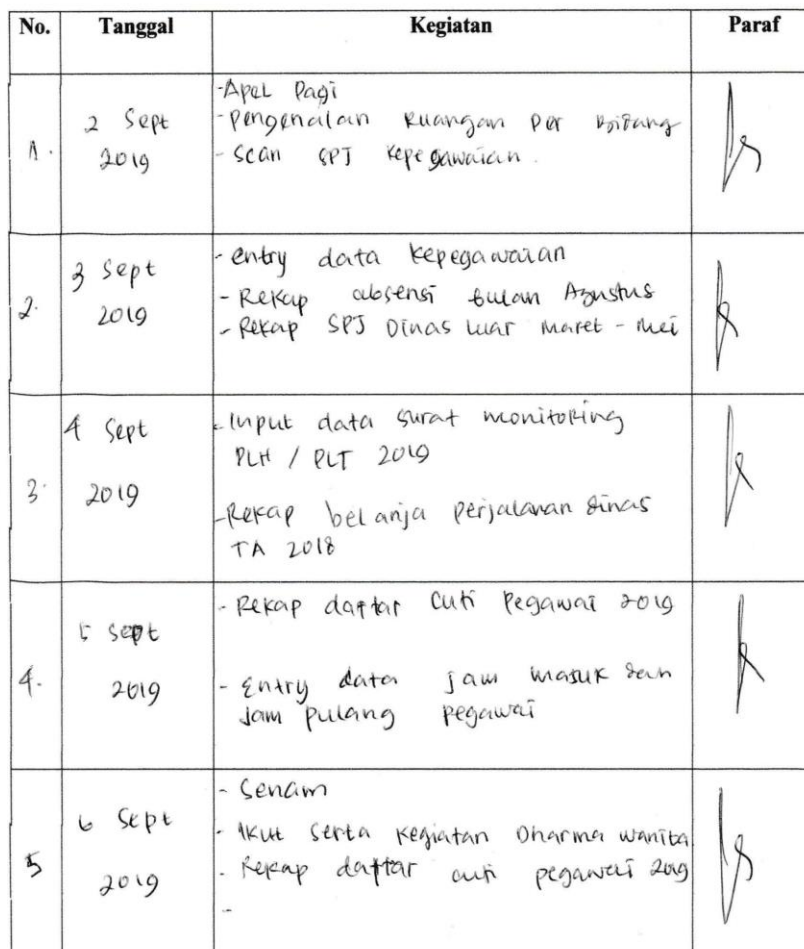 No. Tanggal Kegiatan Paraf
1. 2 Sept 2019
-Apel Pagi
-Pengenalan Ruangan Per Bidang
-Scan SPJ Kepegawaian.
2. 3 Sept 2019
-entry data kepegawaian
-Rekap absensi bulan Agustus
-Rekap SPJ Dinas luar maret - mei
3. 4 Sept 2019
-Input data surat monitoring
PLH / PLT 2019
-Rekap belanja perjalanan dinas
TA 2018
4. 5 Sept 2019
- Rekap daftar Cuti Pegawai 2019
- Entry data jam masuk dan
jam pulang pegawai
5 6 Sept 2019
- Senam
- Ikut serta kegiatan Dharma wanita
- Rekap daftar cuti pegawai 2019
-